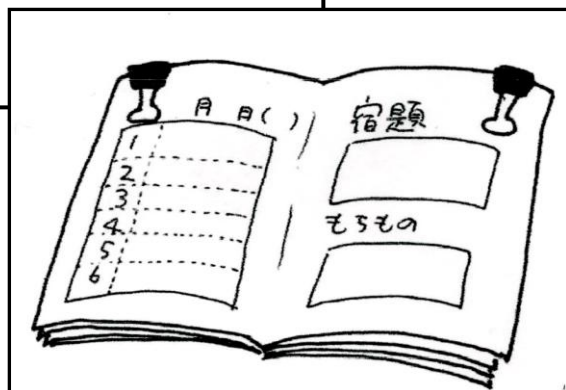 月 日( )
1
2
3
4
5
6
宿題
もちもの